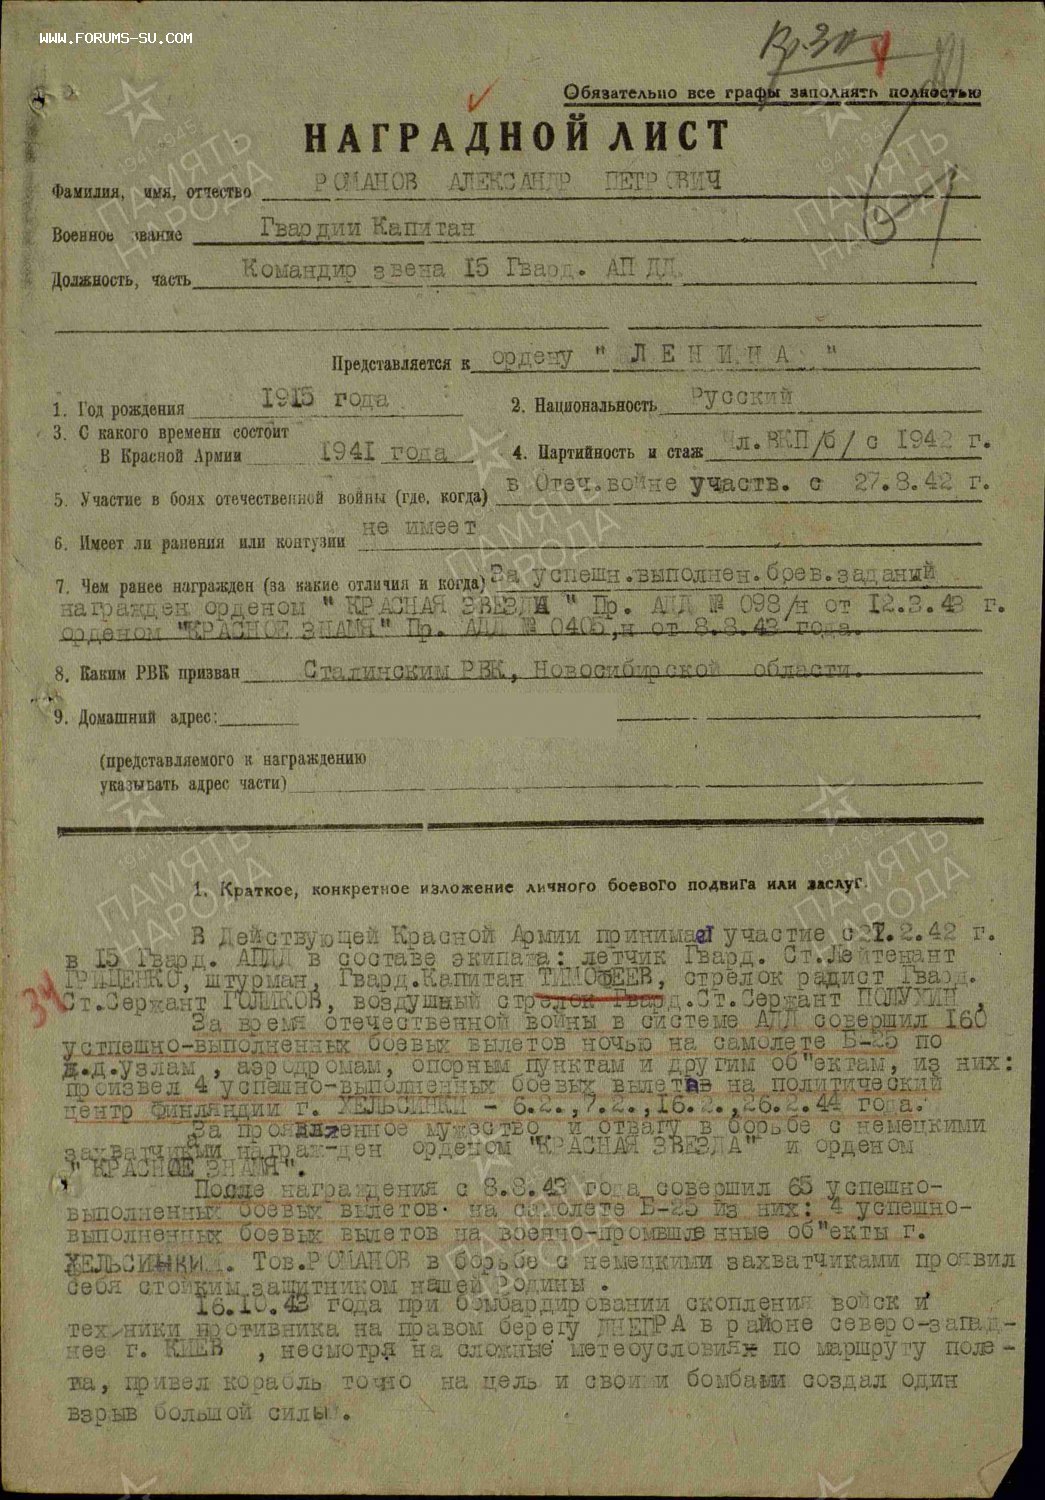 WWW.FORUMS-SU.COM
Обязательно все графы заполнять полностью
НАГРАДНОЙ ЛИСТ
Фамилия, имя, отчество РОМАНОВ АЛЕКСАНДР ПЕТРОВИЧ
Военное звание Гвардии Капитан
Должность, часть Командир звена 15 Гвард. АП ДД.
Представляется к ордену "ЛЕНИНА"
1. Год рождения 1915 года
2. Национальность Русский
3. С какого времени состоит
В Красной Армии 1941 года
4. Партийность и стаж Чл.ВКП/б/ с 1942 г.
5. Участие в боях отечественной войны (где, когда) в Отеч.войне участв. с 27.8.42 г.
6. Имеет ли ранения или контузии не имеет
7. Чем ранее награжден (за какие отличия и когда) За успешн.выполнен.боев.заданий
награжден орденом "КРАСНАЯ ЗВЕЗДА" Пр. АДД № 098/н от 12.3.43 г.
орденом "КРАСНОЕ ЗНАМЯ" Пр. АДД № 0405,н от 8.8.43 года.
8. Каким РВК призван Сталинским РВК, Новосибирской области.
9. Домашний адрес:
(представляемого к награждению
указывать адрес части)
1. Краткое, конкретное изложение личного боевого подвига или заслуг.
В Действующей Красной Армии принимает участие с 2.42 г.
в 15 Гвард. АПДД в составе экипажа: летчик Гвард. Ст.Лейтенант
ГРИЦЕНКО, штурман, Гвард.Капитан ТИМОФЕЕВ, стрелок радист Гвард.
Ст.Сержант ГОЛИКОВ, воздушный стрелок Гвард.Ст.Сержант ПОЛУХИН,
За время отечественной войны в системе АДД совершил 160
устпешно-выполненных боевых вылетов ночью на самолете Б-25 по
ж.д.узлам, аэродромам, опорным пунктам и другим об"ектам, из них:
произвел 4 успешно-выполненных боевых вылетав на политический
центр Финляндии г. ХЕЛЬСИНКИ - 6.2.,7.2.,16.2.,26.2.44 года.
За проявленное мужество и отвагу в борьбе с немецкими
захватчиками награж-ден орденом "КРАСНАЯ ЗВЕЗДА" и орденом
"КРАСНОЕ ЗНАМЯ".
После награждения с 8.8.43 года совершил 65 успешно-
выполненных боевых вылетов. на самолете Б-25 из них: 4 успешно-
выполненных боевых вылетов на военно-промышленные об"екты г.
ХЕЛЬСИНКИ. Тов.РОМАНОВ в борьбе с немецкими захватчиками проявил
себя стойким защитником нашей Родины.
16.10.43 года при бомбардировании скопления войск и
техники противника на правом берегу ДНЕПРА в районе северо-запад-
нее г. КИЕВ, несмотря на сложные метеоусловия по маршруту поле-
та, привел корабль точно на цель и своими бомбами создал один
взрыв большой силы.
34
ПАМЯТЬ НАРОДА
1941-1945